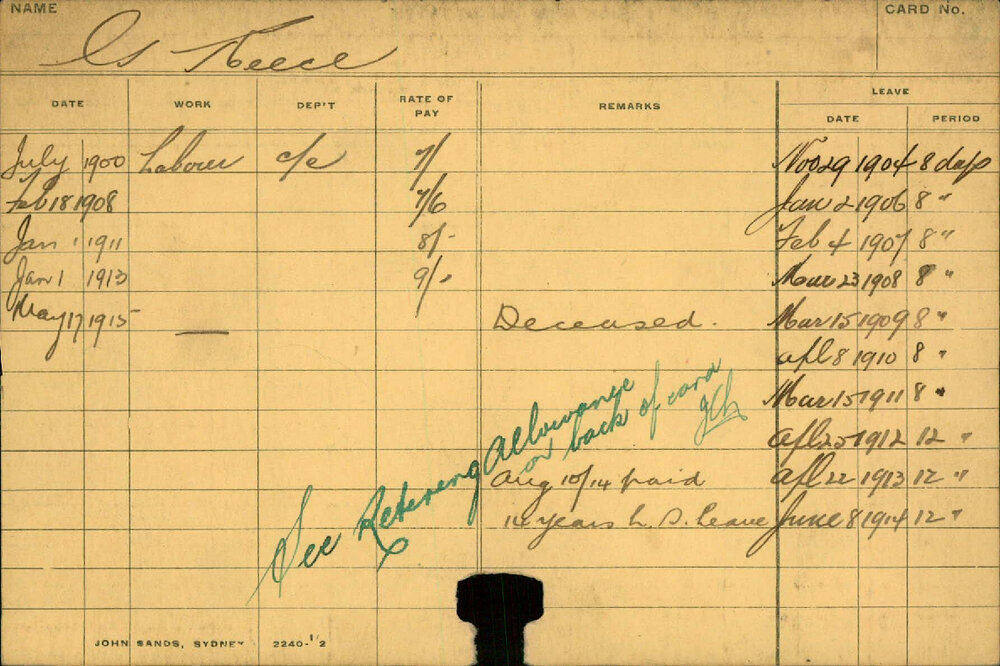 NAME CARD No.
Gs Reece
DATE WORK DEP'T RATE OF PAY REMARKS LEAVE
DATE PERIOD
July 1900 Labour c/e 7/ Nov 29 1904 8 days
Feb 18 1908 7/6 Jan 2 1906 8 "
Jan 1 1911 8/- Feb 4 1907 8 "
Jan 1 1913 9/- Mar 23 1908 8 "
May 17 1915 — Deceased. Mar 15 1909 8 "
Apl 8 1910 8 "
Mar 15 1911 8 "
Apl 25 1912 12 "
Aug 10/14 paid Apl 22 1913 12 "
14 years L. S. Leave June 8 1914 12 "
See Retereng Allowance
on back of card
JOHN SANDS, SYDNEY 2240-1/2